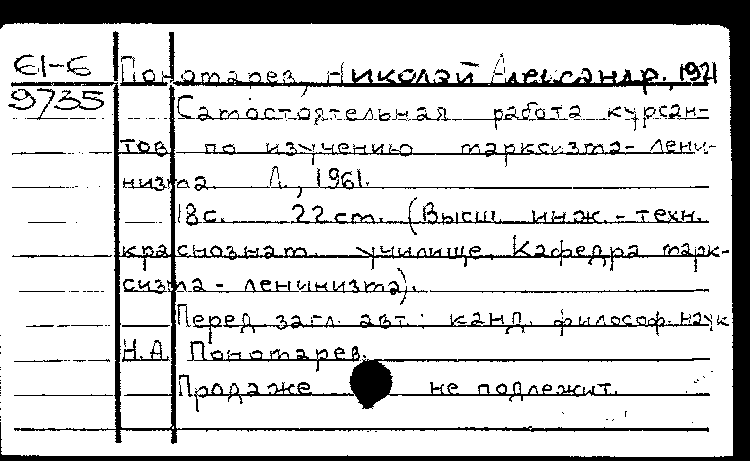 61-6 Пономарев, Николай Александр., 1921
9735 Самостоятельная работа курсан-
тов по изучению марксизма-лени-
низма. Л., 1961.
18с. 22см. (Высш. инж.-техн.
краснознам. училище. Кафедра марк-
сизма-ленинизма).
Перед загл. авт.: канд. философ. наук
Н.А. Пономарев.
Продаже не подлежит.